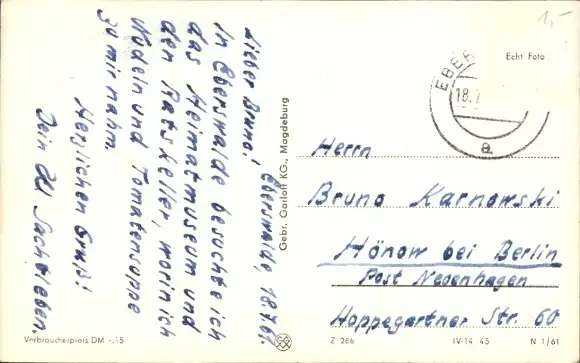 Eberswalde, 18.7.61.
Lieber Bruno!
In Eberswalde besuchte ich
das Heimatmuseum und
den Ratskeller, worin ich
Nudeln und Tomatensuppe
zu mir nahm.
Herzlichen Gruß!
Dein
Verbraucherpreis DM -.15
Gebr. Garloff KG., Magdeburg
1,-
Echt Foto
EBER
18.7
a
Herrn
Bruno Karnowski
Hönow bei Berlin
Post Neuenhagen
Hoppegartner Str. 60
Z 286 IV-14 45 N 1/61